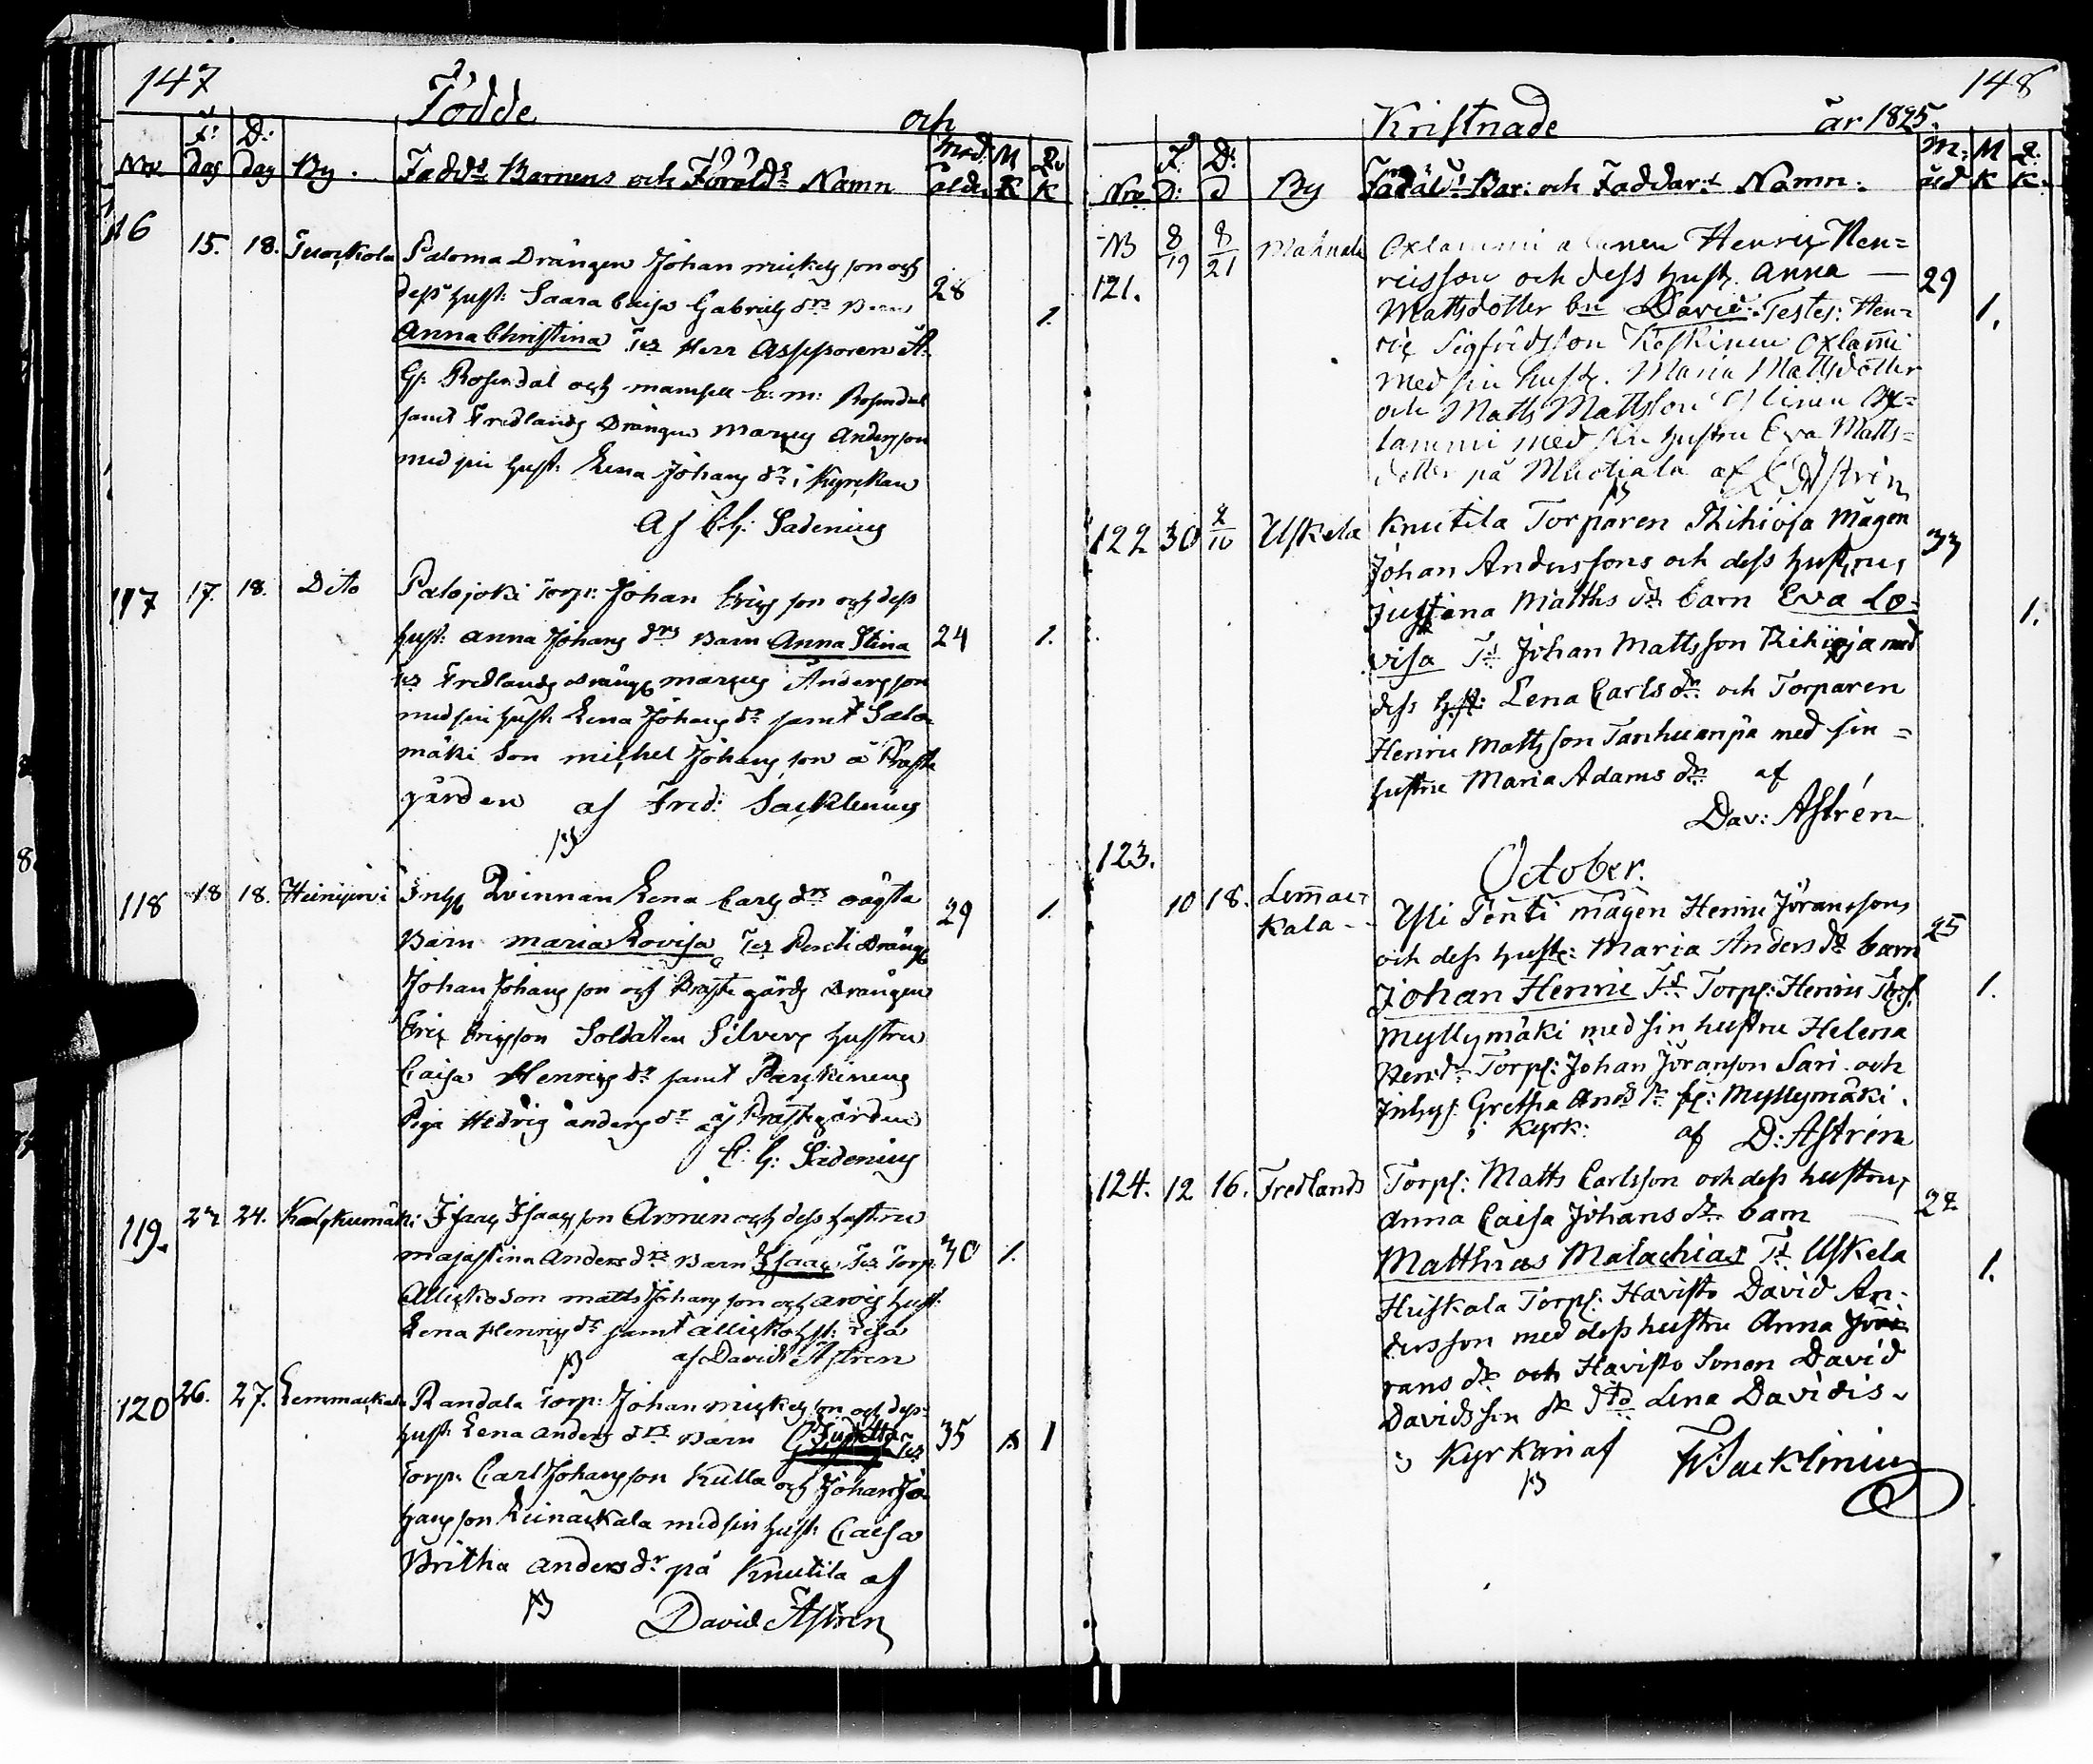 147
Födde och
Nro F: dag D: dag By. Fadd: Barnens och Förälds Namn Mod: ålder M K Qv K
116 15. 18. Tuorkola Paloma Drängen Johan Mickels son och
dess hust: Saara Caisa Gabriels drs Barn 28 1.
Anna Christina Tes Herr Assessoren A:
G: Rosendal och mamsell C: M: Rosendal
samt Fredlands Drängen Marcus Andersson
med sin hust: Lena Johans dr i Kyrckan
Af C. G: Sadenius
117 17. 18. Dito Palojoki Torp: Johan Ericsson och dess
hust: Anna Johans drs Barn Anna Stina 24 1.
Tes Fredlands dräng Marcus Andersson
med sin hust: Lena Johans dr samt Salo
mäki Son Michel Johansson å Präste
gården af Fred: Sacklenius
118 18 18. Heinijervi Inh: Qvinnan Lena Carls drs oägta 29 1.
Barn Maria Lovisa Tes Penti dräng
Johan Johansson och Prästegårds Drängen
Eric Ericsson Soldaten Silvers hustru
Caisa Henrics dr samt
Piga Hedvig Anders dr af Prästegården
C: G: Sadenius
119. 22 24. Isaac Isaacsson Aronen och dess hustru
Majastina Anders drs Barn Isaac Tes Torp: 30 1.
Son Matts Johansson och hust:
Lena Henrics dr samt hst:
af David Astren
120 26. 27. Lemmackala Randala Torp: Johan Mickelsson och dess
hust: Lena Anders drs Barn Juditha Tes 35 1
Torp: Carl Johansson Kulla och Johan Jo
hansson Leinackala med sin hust: Caisa
Britha Anders dr på Knutila af
David Astren
148
Kristnade år 1825.
Nro F: D: D: D By Föräld: Bar: och Faddar:s Namn: M: ård M K Q. K.
NB 8/19 8/21 Mahnala Oxlammi Henric Hen=
121. ricsson och dess hust. Anna — 29
Mattsdotter bn David. Testes: Hen= 1.
ric Sigfridsson Keskinen Oxlammi
med sin hust. Maria Mattsdotter
och Matts Mattsson Ox=
lammi med sin hustru Eva Matts=
dotter på Mutiala af Astrén
122 30 2/10 Uskela Knutila Torparen Rihioja Mågen 33
Johan Anderssons och dess hustrus
Justina Matths dr barn Eva Lo= 1.
visa Ts Johan Mattsson Rihioja med
dess hst: Lena Carls dr och Torparen
Henric Mattsson Tanhuanpä med sin =
hustru Maria Adams dr af
Dav: Astrén
123. October.
10 18. Lemac=
kala -- Yli Penti mågen Henric Jöranssons 25
och dess hust: Maria Anders dr barn
Johan Henric Ts Torp: Henric 1.
Myllymäki med sin hustru Helena
Torp: Johan Jöransson Sari och
Inhys: Gretha And dr fr: Myllymäki.
i Kyrk: af D: Astrén
124. 12 16. Fredlands Torp: Matts Carlsson och dess hustrus 24
Anna Caisa Johans dr barn
Matthias Malachias Ts Uskela 1.
Huiskala Torp: Havisto David An=
dersson med dess hustru Anna Jöre
rans dr och Havisto Sonen David
Davidsson dr dto Lena Davidis
i Kyrkan af F. Sacklinius